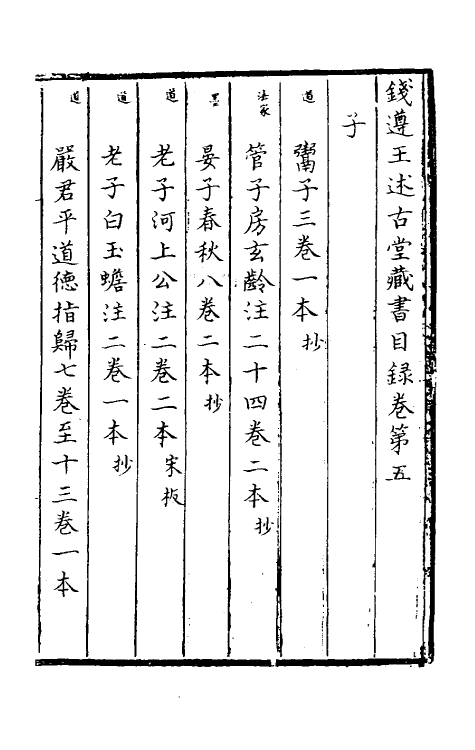 錢遵王述古堂藏書目録卷第五
子
道 鬻子三卷一本抄
法家 管子房玄齡注二十四卷二本抄
墨 晏子春秋八卷二本抄
道 老子河上公注二卷二本宋板
道 老子白玉蟾注二卷一本抄
道 嚴君平道德指歸七卷至十三卷一本